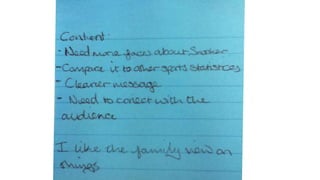 Content:
- Need more facts about Snooker
- Compare it to other sports statistics
- Clearer message
- Need to conect with the
audience
I like the family view on
things